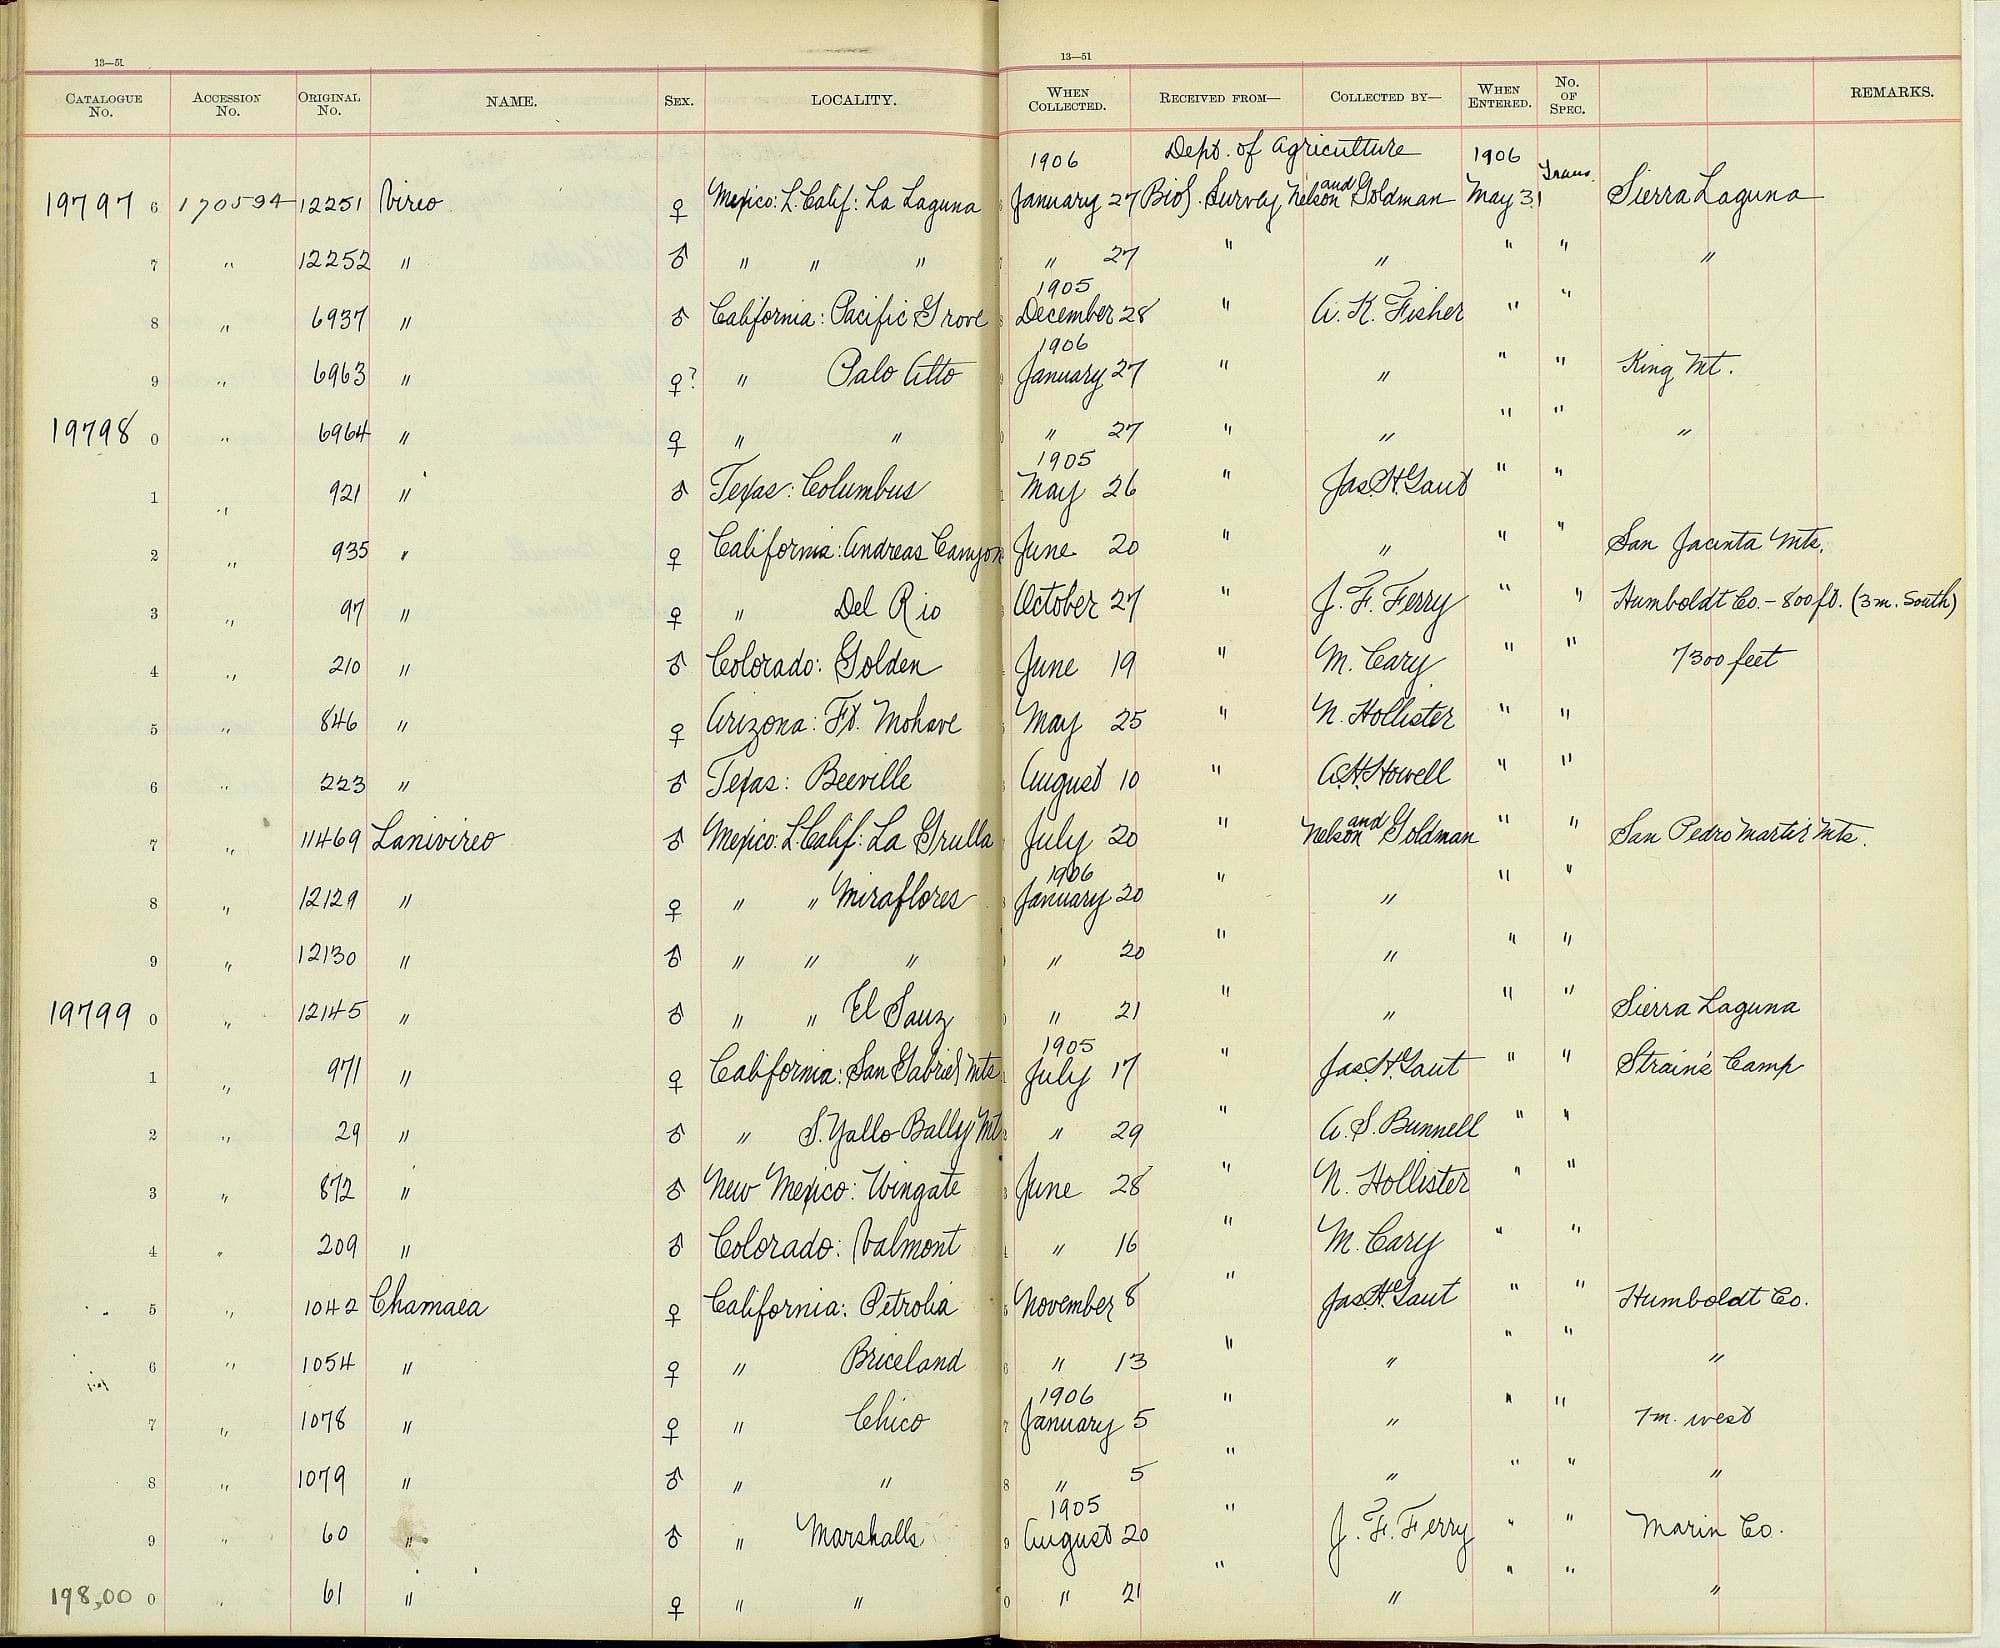 13—51 13—51
CATALOGUE No. ACCESSION No. ORIGINAL No. NAME. SEX. LOCALITY. WHEN COLLECTED. RECEIVED FROM— COLLECTED BY— WHEN ENTERED. No. OF SPEC. REMARKS.
1906 Dept. of Agriculture 1906
19797 6 170594 12251 Vireo ♀ Mexico: L. Calif: La Laguna January 27 Biol. Survey Nelson and Goldman May 31 Trans. Sierra Laguna
7 " 12252 " ♂ " " " " 27 " " " " "
1905
8 " 6937 " ♂ California: Pacific Grove December 28 " A. K. Fisher " "
1906
9 " 6963 " ♀? " Palo Alto January 27 " " " " King Mt.
19798 0 " 6964 " ♀ " " " 27 " " " " "
1905
1 " 921 " ♂ Texas: Columbus May 26 " Jas. H. Gaut " "
2 " 935 " ♀ California: Andreas Canyon June 20 " " " " San Jacinta Mts.
3 " 97 " ♀ " Del Rio October 27 " J. F. Ferry " " Humboldt Co. - 800 ft. (3 m. South)
4 " 210 " ♂ Colorado: Golden June 19 " M. Cary " " 7300 feet
5 " 846 " ♀ Arizona: Ft. Mohave May 25 " N. Hollister " "
6 " 223 " ♂ Texas: Beeville August 10 " A. H. Howell " "
7 " 11469 Lanivireo ♂ Mexico: L. Calif: La Grulla July 20 " Nelson and Goldman " " San Pedro Martir Mts.
1906
8 " 12129 " ♀ " " Miraflores January 20 " " " "
9 " 12130 " ♂ " " " " 20 " " " "
19799 0 " 12145 " ♂ " " El Sauz " 21 " " " " Sierra Laguna
1905
1 " 971 " ♀ California: San Gabriel Mts July 17 " Jas. H. Gaut " " Strain's Camp
2 " 29 " ♂ " S. Yallo Bally Mt " 29 " A. S. Bunnell " "
3 " 872 " ♂ New Mexico: Wingate June 28 " N. Hollister " "
4 " 209 " ♂ Colorado: Valmont " 16 " M. Cary " "
5 " 1042 Chamaea ♀ California: Petrolia November 8 " Jas. H. Gaut " " Humboldt Co.
6 " 1054 " ♀ " Briceland " 13 " " " " "
1906
7 " 1078 " ♀ " Chico January 5 " " " " 7 m. west
8 " 1079 " ♂ " " " 5 " " " " "
1905
9 " 60 " ♂ " Marshalls August 20 " J. F. Ferry " " Marin Co.
198,00 0 " 61 " ♀ " " " 21 " " " " "